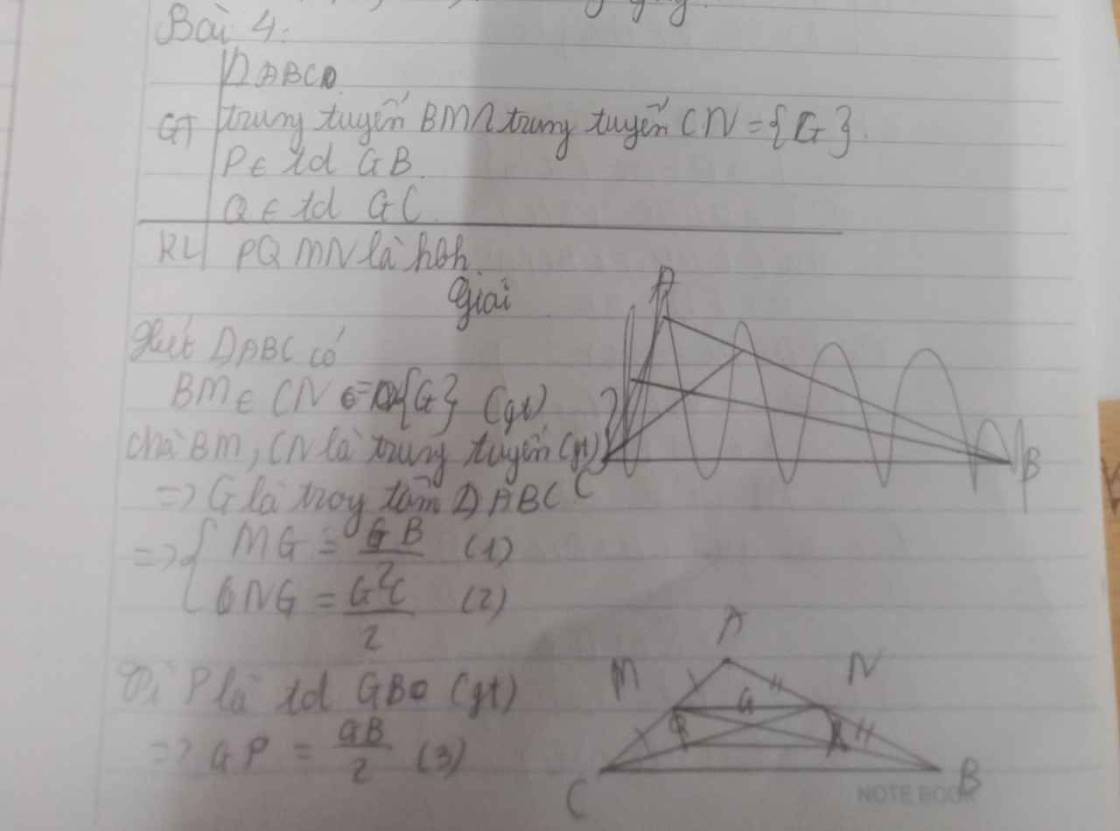 Bài 4:
GT
ΔABC
trung tuyến BM∩trung tuyến CN={G}
P∈ td GB.
Q∈ td GC
KL PQMN là hbh.
Giải
ΔABC có
BM∈ CN {G} (gt)
BM, CN là trung tuyến (gt)
=> G là trog tâm ΔABC
=> { MG = GB/2 (1)
NG = GC/2 (2)
Vì P là td GB (gt)
=> GP = GB/2 (3)
A
B
C
A
M
N
G
C
B
NOTE BOOK